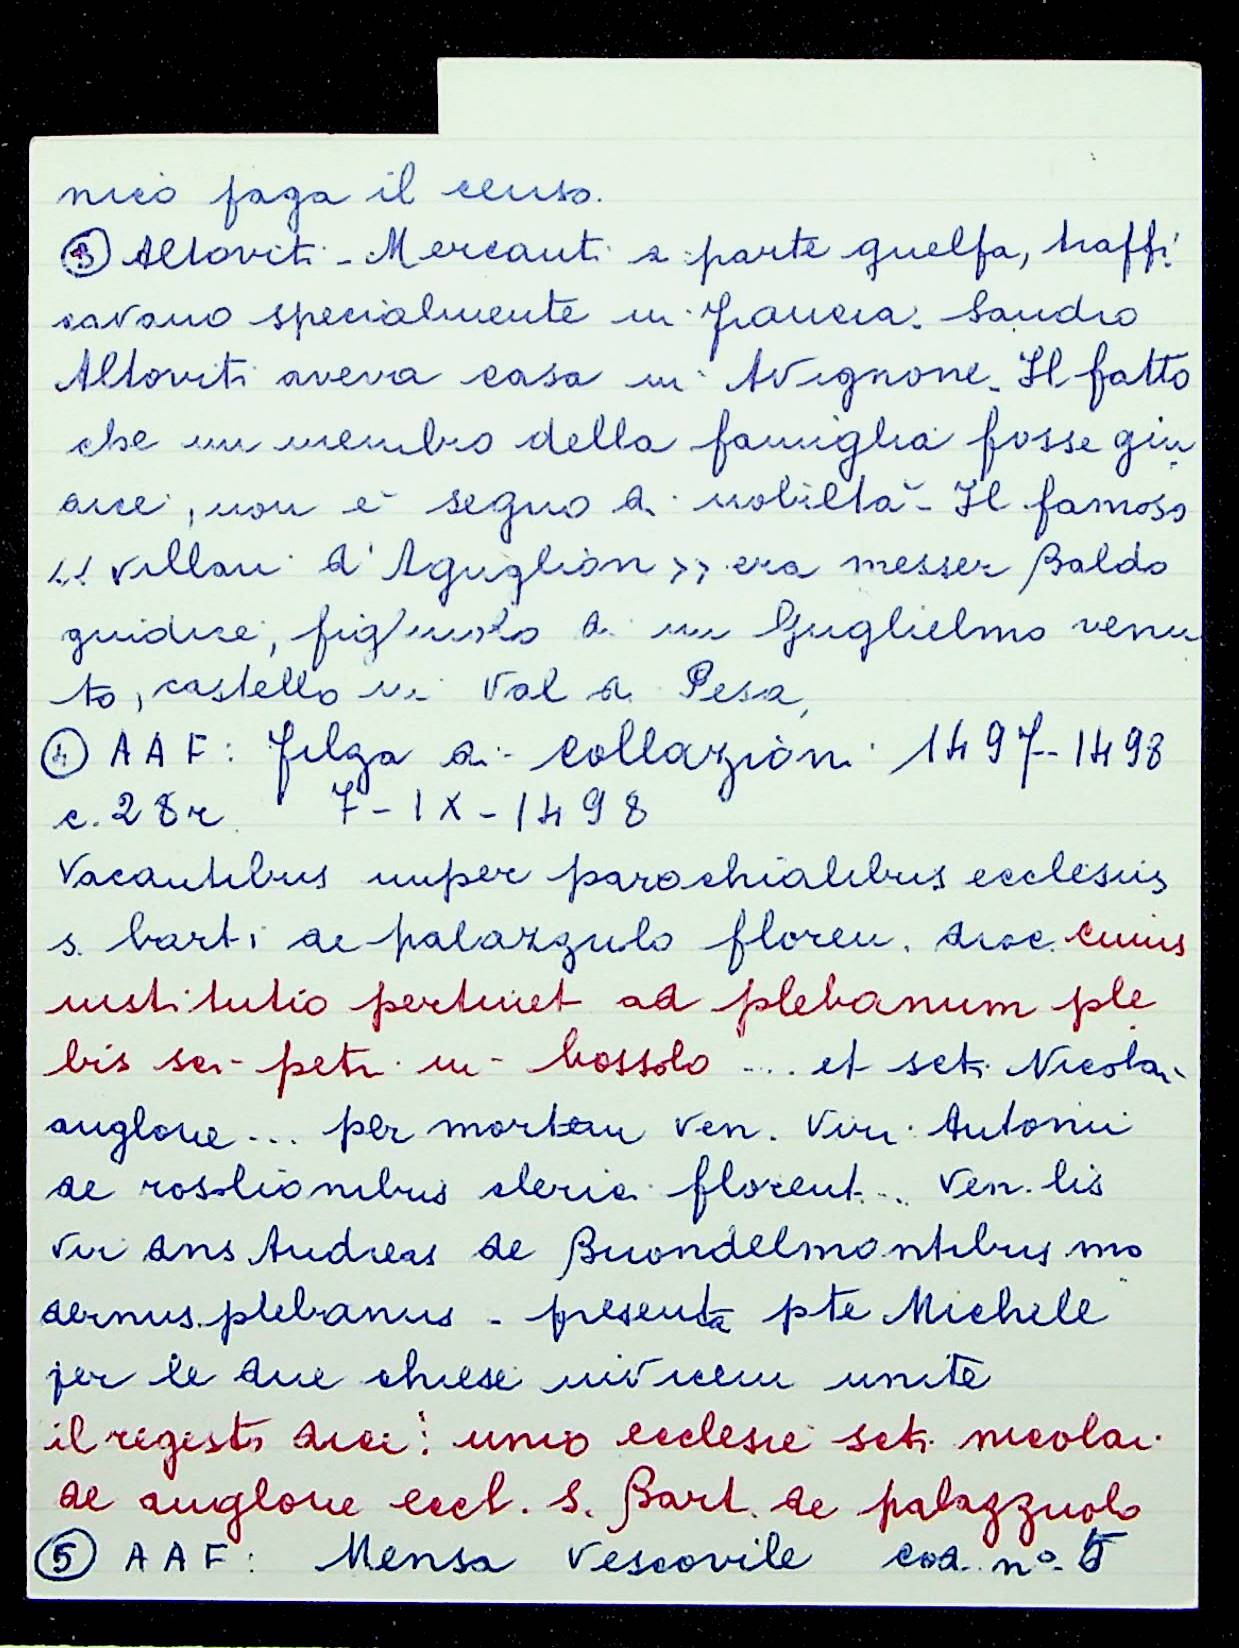 nico paga il censo.
③ Altoviti - Mercanti a parte guelfa, traffi
cavano specialmente in francia. Sandro
Altoviti aveva casa in Avignone. Il fatto
che un membro della famiglia fosse giu
dice, non è segno di nobiltà - Il famoso
<< villan d'Aguglion >> era messer Baldo
guidice, figliuolo di un Guglielmo venu
to, castello in Val di Pesa,
④ AAF: filza di collazioni 1497-1498
c. 28r 7-IX-1498
Vacantibus nuper parochialibus ecclesiis
s. barti de palazzulo floren. dioc. cuius
institutio pertinet ad plebanum ple
bis sci petri in bossolo .... et scti Nicolai
anglone ... per mortem ven. viri Antonii
de rossolionibus clerici florent... Ven.lis
vir dns Andreas de Buondelmontibus mo
dernus plebanus - presenta pte Michele
per le due chiese invicem unite
il regesto dice: unio ecclesie scti nicolai
de anglone eccl. S. Bart. de palazzuolo
⑤ AAF: Mensa Vescovile cod. n° 5